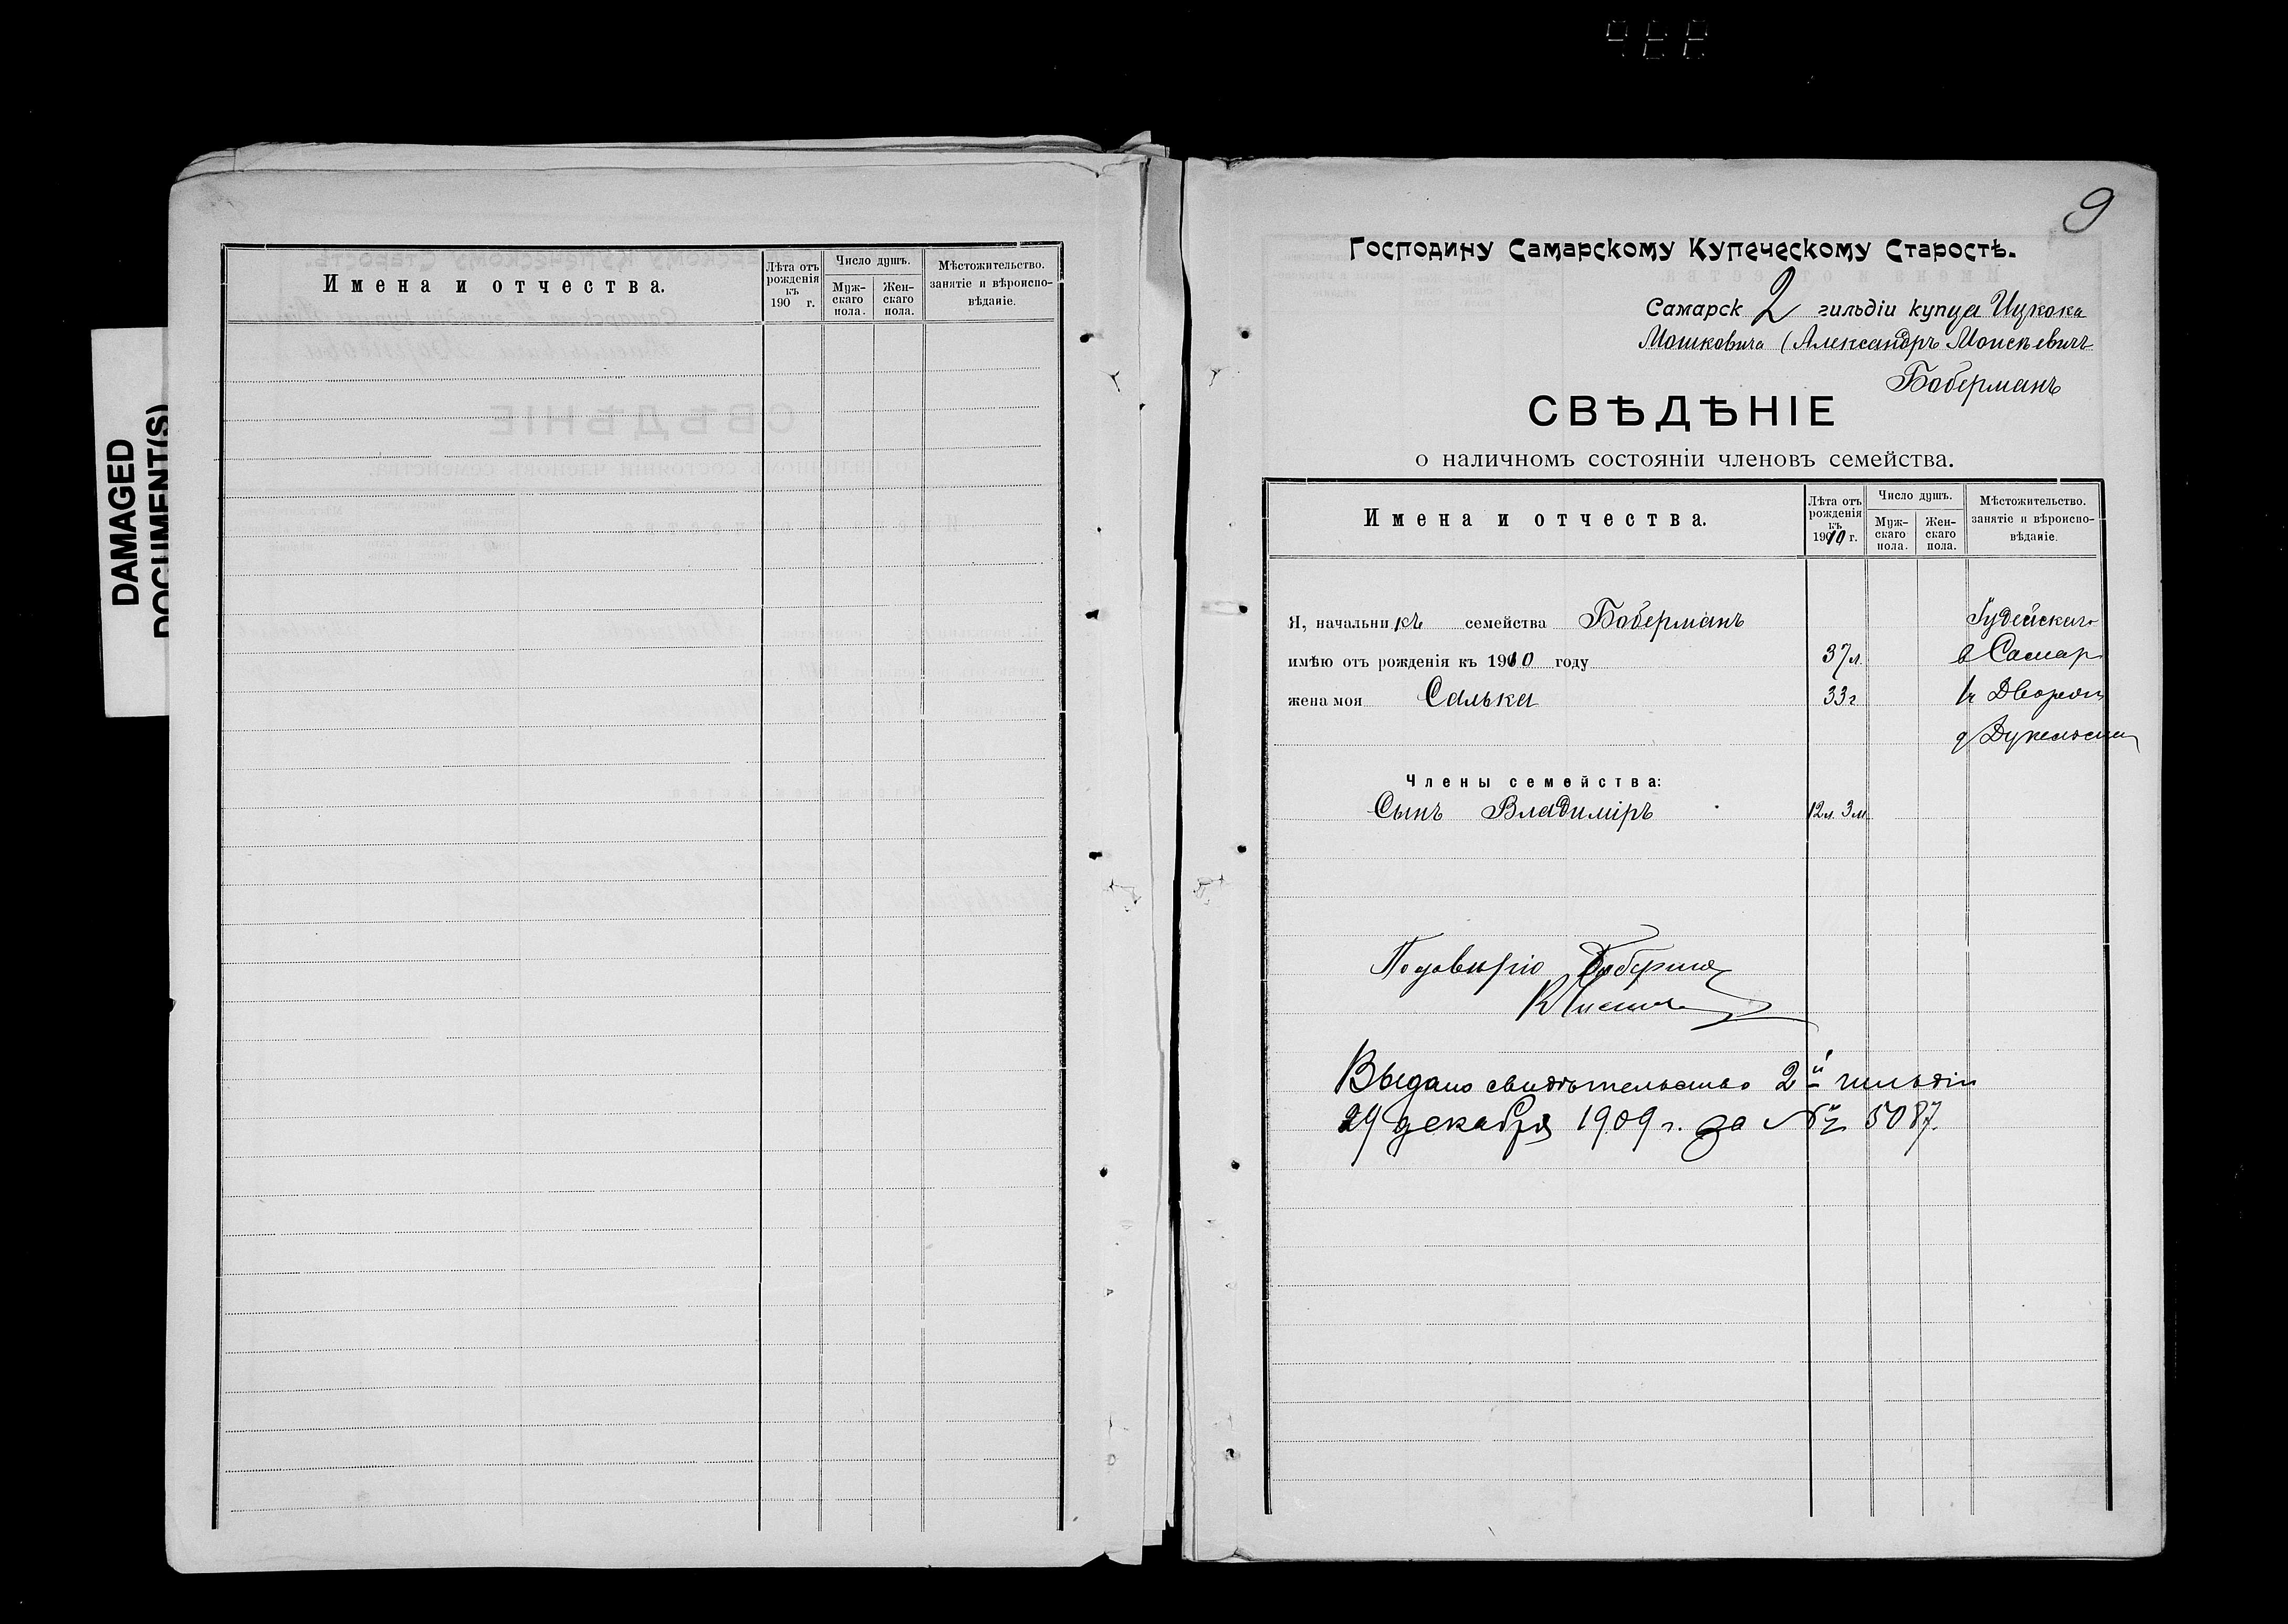 DAMAGED
DOCUMENT(S)
Имена и отчества.
Лѣта отъ рожденія къ 190 г.
Число душъ.
Муж-скаго пола.
Жен-скаго пола.
Мѣстожительство. занятіе и вѣроиспо-вѣданіе.
9
Господину Самарскому Купеческому Старостѣ.
Самарск 2 гильдіи купца Ицкока
Мошковича (Александръ Моисѣевичъ
Боберманъ
СВѢДѢНІЕ
о наличномъ состояніи членовъ семейства.
Имена и отчества.
Лѣта отъ рожденія къ 1910 г.
Число душъ.
Муж-скаго пола.
Жен-скаго пола.
Мѣстожительство. занятіе и вѣроиспо-вѣданіе.
Я, начальникъ семейства Боберманъ Іудейскаго
имѣю отъ рожденія къ 1910 году 37 л. в Самар
жена моя Салька 33 г Дворян
Члены семейства:
Сынъ Владиміръ 12 л. 3 м.
По довѣрію Боберма
Выдано свидѣтельство 2й гильдіи
29 декабря 1909 г. за № 5087.